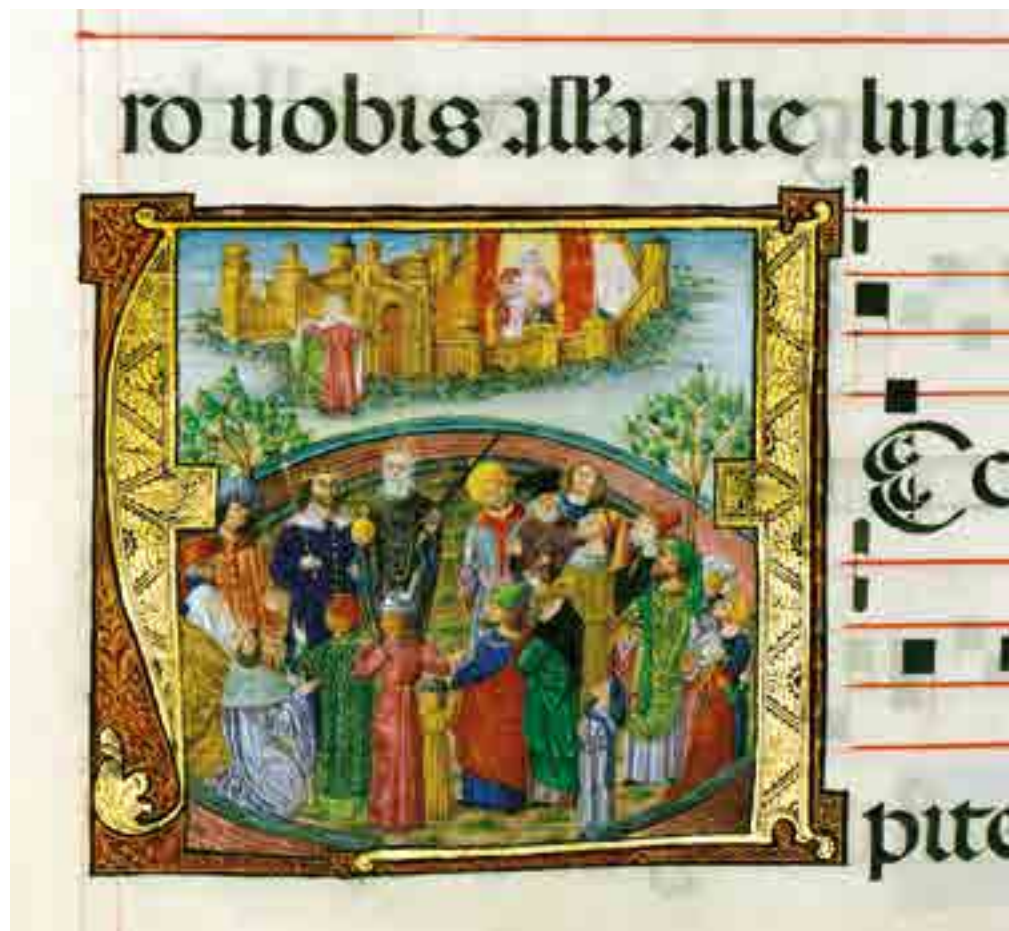 ro uobis all'a alle luia
Eo
pite